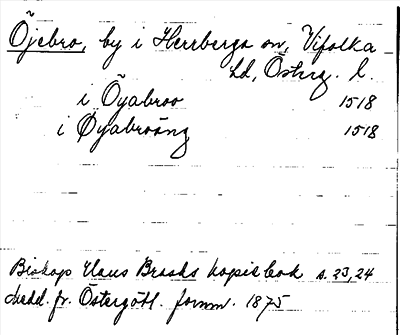 Öjebro, by i Herrberga sn, Vifolka
hd, Österg. l.
i Öyabroo 1518
i Øyabroäng 1518
Biskop Hans Brasks kopiebok s. 23, 24
Medd. fr. Östergötl. fornm. 1875